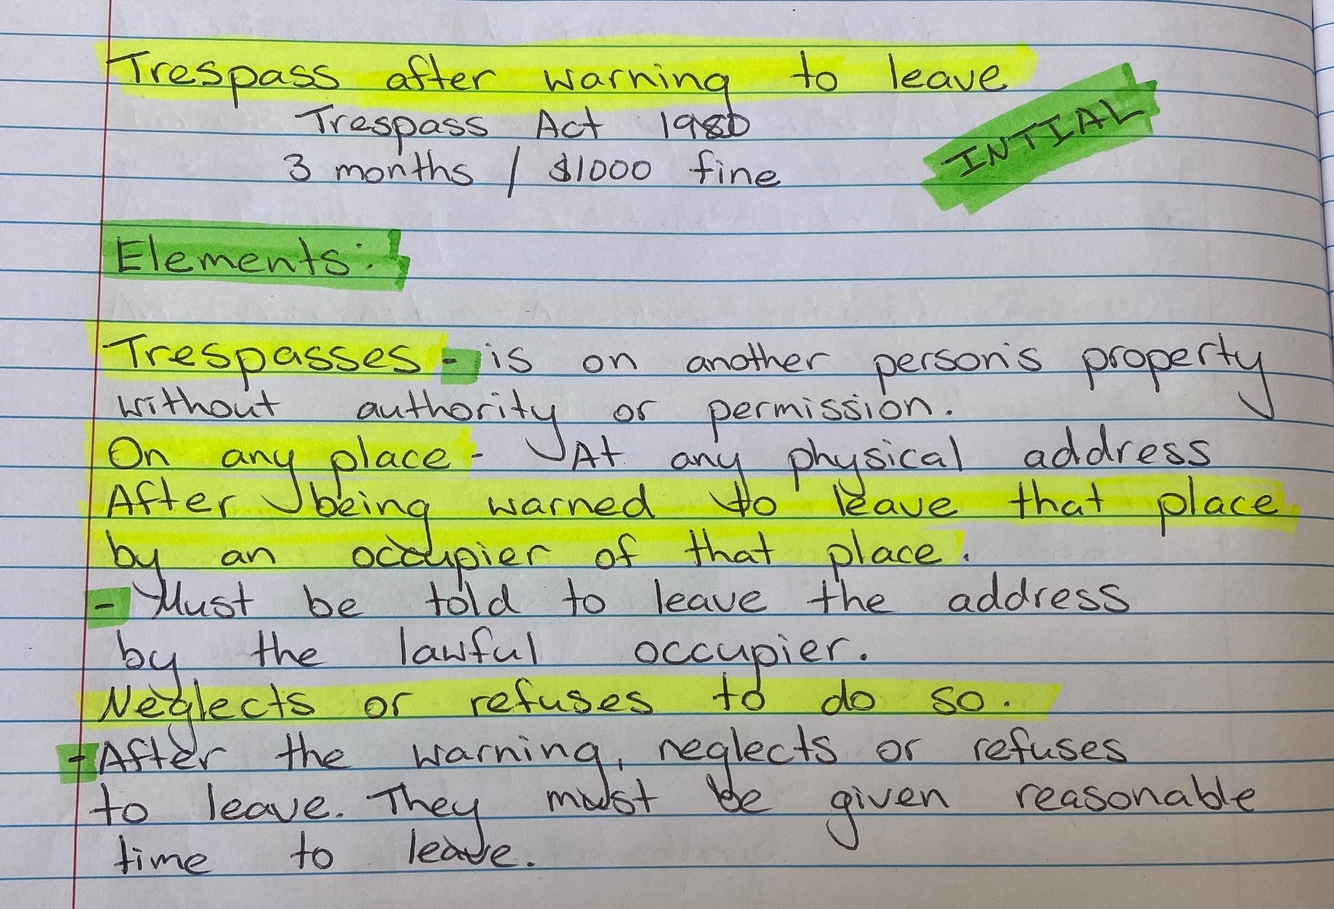 Trespass after warning to leave
Trespass Act 1980
3 months / $1000 fine
INTIAL
Elements:
Trespasses - is on another person's property
without authority or permission.
On any place - At any physical address
After being warned to leave that place
by an occupier of that place.
- Must be told to leave the address
by the lawful occupier.
Neglects or refuses to do so.
- After the warning, neglects or refuses
to leave. They must be given reasonable
time to leave.